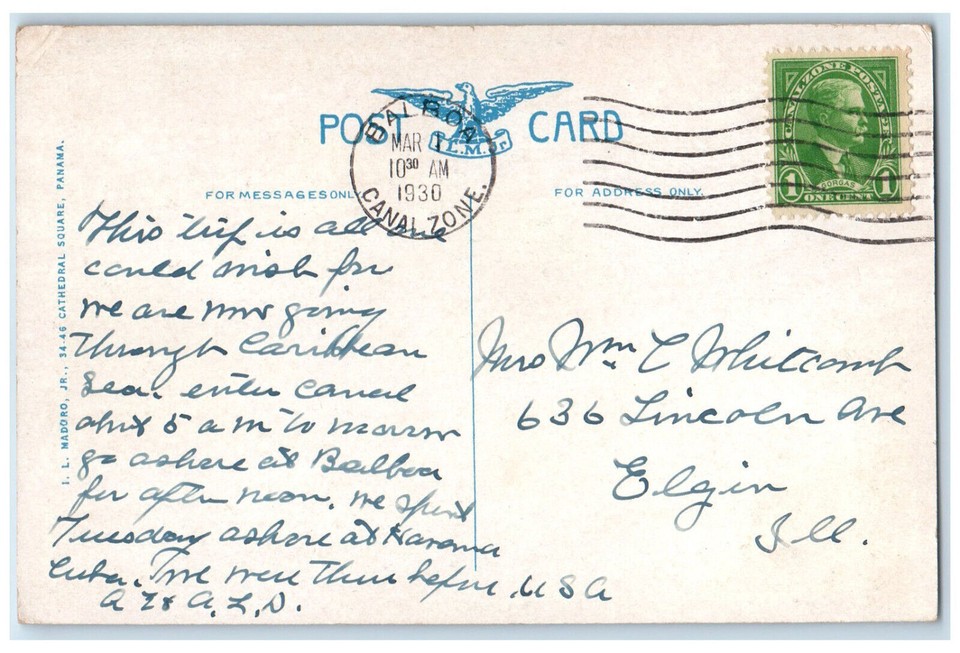 POST CARD
I. L. M. Jr.
BALBOA
MAR 1
10 30 AM
1930
CANAL ZONE.
CANAL ZONE POSTAGE
GORGAS
1 1
ONE CENT
FOR MESSAGES ONLY.
FOR ADDRESS ONLY.
I. L. MADURO, JR., 34-46 CATHEDRAL SQUARE, PANAMA.
This trip is all one
could wish for
we are now going
Through Caribbean
Sea. enter canal
abut 5 a m to morrow
go ashore at Balboa
for after noon. we spent
Tuesday ashore at Havana
Cuba. I've been there before. USA
A L. D.
Mrs Wm C Whitcomb
636 Lincoln Ave
Elgin
Ill.